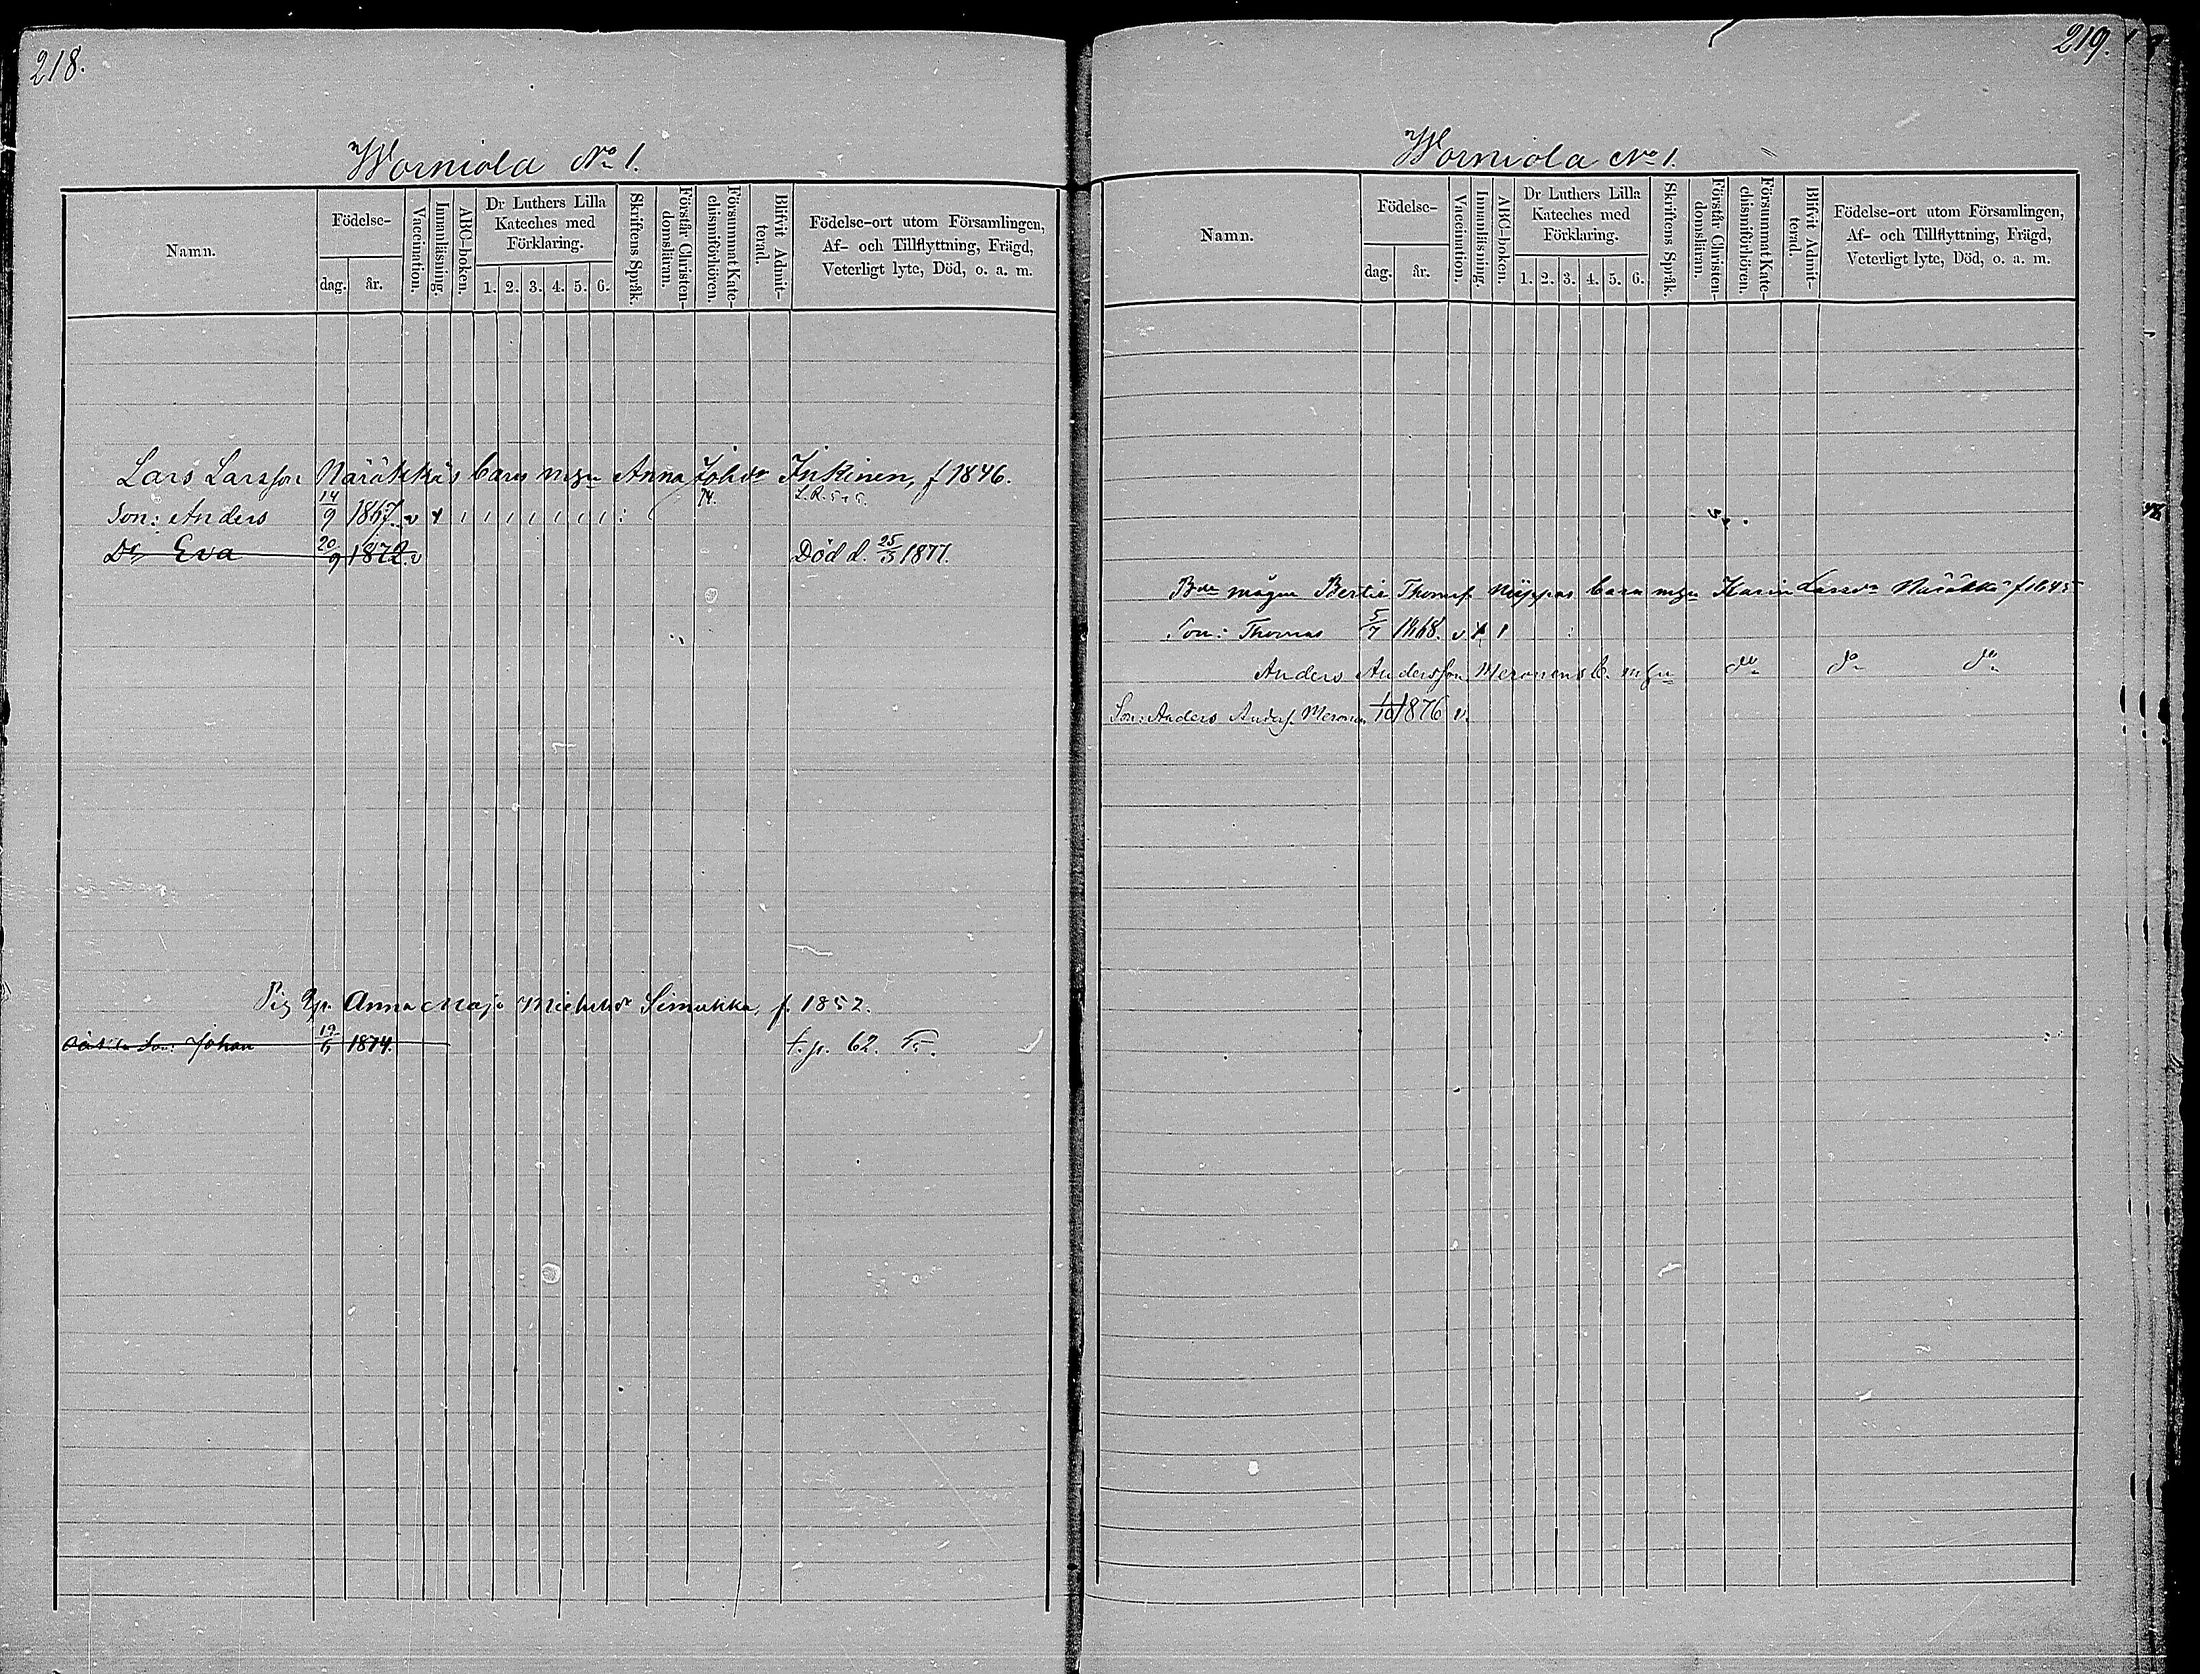 218.
Worniola No 1.
Namn.
Födelse-
dag.
år.
Vaccination.
Innanläsning.
ABC-boken.
Dr Luthers Lilla
Kateches med
Förklaring.
1. 2. 3. 4. 5. 6.
Skriftens Språk.
Förstår Christen-
domsläran.
Försummat Kate-
chismiförhören.
Blifvit Admit-
terad.
Födelse-ort utom Församlingen,
Af- och Tillflyttning, Frägd,
Veterligt lyte, Död, o. a. m.
Lars Larsson Näräkkäs barn m Anna Johdr Inkinen, f 1846.
Son: Anders 14/9 1867. v x 74.
Dr Eva 20/9 1872. v Död d. 25/3 1877.
Pig Anna Maja Michelsdr Simukka, f. 1852.
Son: Johan 19/6 1874. t. p. 62.
219.
Worniola No 1.
Namn.
Födelse-
dag.
år.
Vaccination.
Innanläsning.
ABC-boken.
Dr Luthers Lilla
Kateches med
Förklaring.
1. 2. 3. 4. 5. 6.
Skriftens Språk.
Förstår Christen-
domsläran.
Försummat Kate-
chismiförhören.
Blifvit Admit-
terad.
Födelse-ort utom Församlingen,
Af- och Tillflyttning, Frägd,
Veterligt lyte, Död, o. a. m.
Bdn mågen Bertil Thomsf. barn Karin Larsdr Näräkkä f 1845
Son: Thomas 5/7 1868. v x
Anders Andersson Meronens b. do do do
Son: Anders Andersf. Meronen 1/10 1876 v.